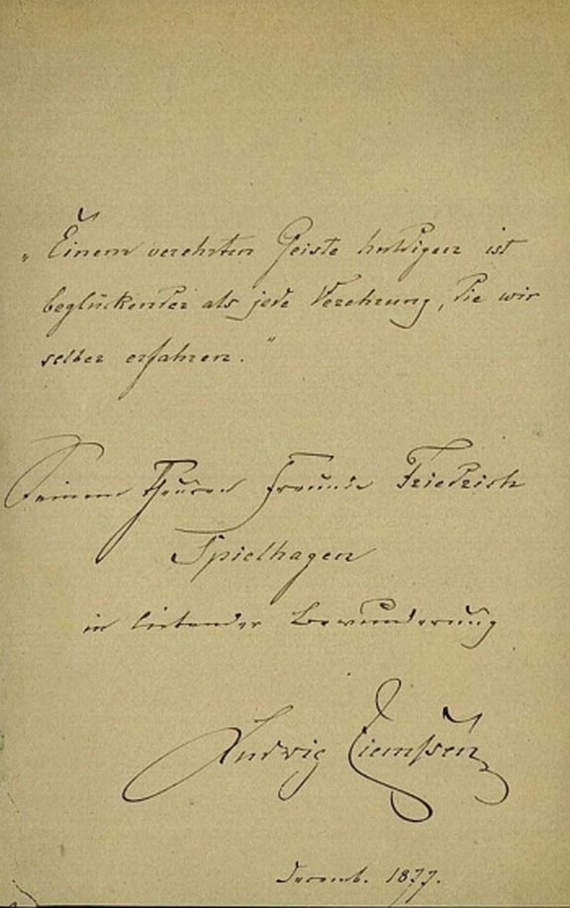 „Einem verehrten Geiste huldigen ist
beglückender als jede Verehrung, die wir
selber erfahren.“
Seinem theuren Freunde Friedrich
Spielhagen
in liebender Bewunderung
Ludwig Ziemssen
Decemb. 1877.